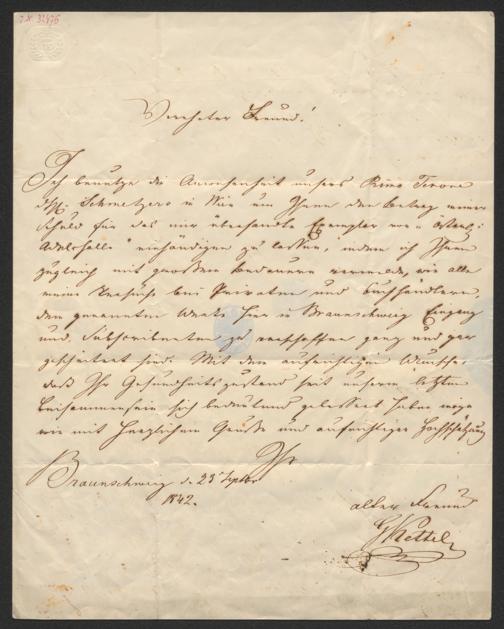 I.N. 32476
Verehrter Freund!
Ich benutze die Anwesenheit unsers Primo Tenore
H. Schmetzers in Wien um Ihnen den Betrag meiner
Schuld für das mir übersandte Exemplar von „Österr:
Adelshalle" einhändigen zu lassen, indem ich Ihnen
zugleich mit großem Bedauern vermelde, wie alle
meine Versuche bei Privaten und Buchhändlern
dem genannten Werke hier in Braunschweig Eingang
und Subscribenten zu verschaffen ganz und gar
gescheitert sind. Mit dem aufrichtigen Wunsche,
daß Ihr Gesundheitszustand seit unserm letzten
Beisammensein sich bedeutend gebessert haben möge
wie mit herzlichem Gruße und aufrichtiger Hochschätzung
Ihr
Braunschweig d. 23 Septbr
1842.
alter Freund
GKettel